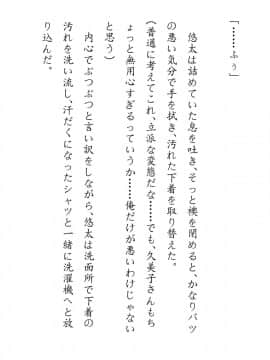 「……ふぅ」
　悠太は詰めていた息を吐き、そっと襖を閉めると、かなりバツ
の悪い気分で手を拭き、汚れた下着を取り替えた。
（普通に考えてこれ、立派な変態だな……でも、久美子さんもち
ょっと無用心すぎるっていうか……俺だけが悪いわけじゃない
と思う）
　内心でぶつぶつと言い訳をしながら、悠太は洗面所で下着の
汚れを洗い流し、汗だくになったシャツと一緒に洗濯機へと放
り込んだ。